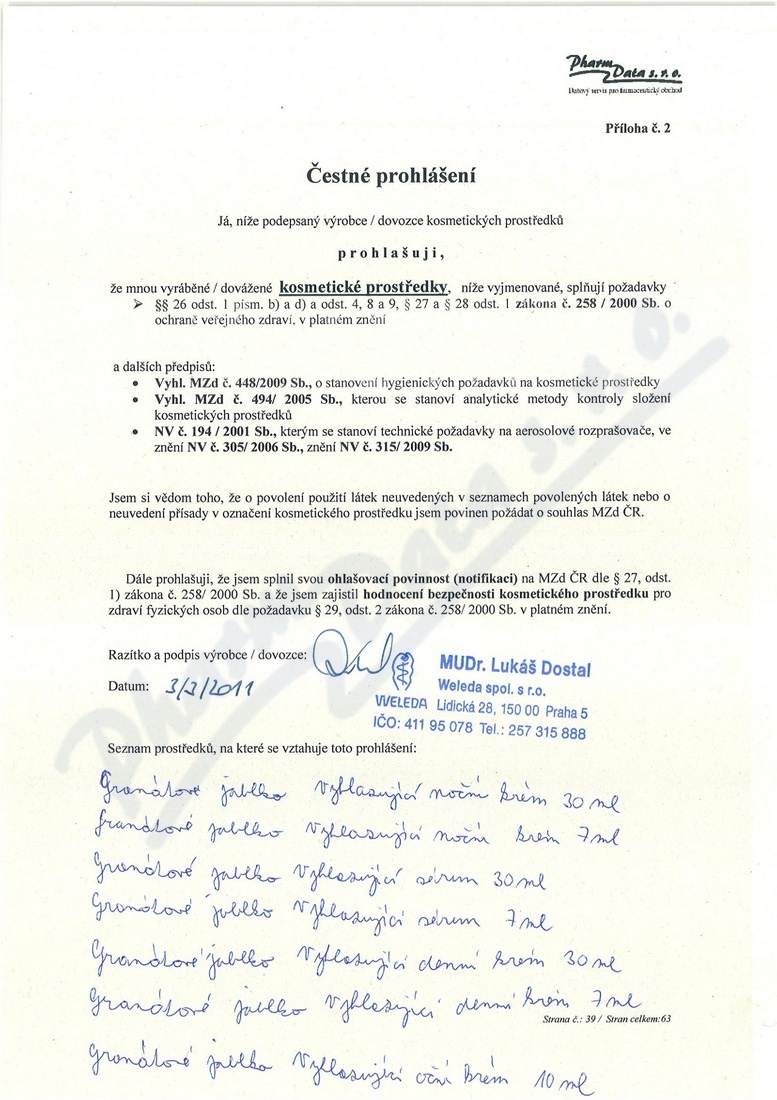 Pharm Data s. r. o.
Datový servis pro farmaceutický obchod
Příloha č. 2
Čestné prohlášení
Já, níže podepsaný výrobce / dovozce kosmetických prostředků
prohlašuji,
že mnou vyráběné / dovážené kosmetické prostředky, níže vyjmenované, splňují požadavky
➢ §§ 26 odst. 1 písm. b) a d) a odst. 4, 8 a 9, § 27 a § 28 odst. 1 zákona č. 258 / 2000 Sb. o
ochraně veřejného zdraví, v platném znění
a dalších předpisů:
• Vyhl. MZd č. 448/2009 Sb., o stanovení hygienických požadavků na kosmetické prostředky
• Vyhl. MZd č. 494/ 2005 Sb., kterou se stanoví analytické metody kontroly složení
kosmetických prostředků
• NV č. 194 / 2001 Sb., kterým se stanoví technické požadavky na aerosolové rozprašovače, ve
znění NV č. 305/ 2006 Sb., znění NV č. 315/ 2009 Sb.
Jsem si vědom toho, že o povolení použití látek neuvedených v seznamech povolených látek nebo o
neuvedení přísady v označení kosmetického prostředku jsem povinen požádat o souhlas MZd ČR.
Dále prohlašuji, že jsem splnil svou ohlašovací povinnost (notifikaci) na MZd ČR dle § 27, odst.
1) zákona č. 258/ 2000 Sb. a že jsem zajistil hodnocení bezpečnosti kosmetického prostředku pro
zdraví fyzických osob dle požadavku § 29, odst. 2 zákona č. 258/ 2000 Sb. v platném znění.
Razítko a podpis výrobce / dovozce:
MUDr. Lukáš Dostal
Weleda spol. s r.o.
WELEDA Lidická 28, 150 00 Praha 5
IČO: 411 95 078 Tel.: 257 315 888
Datum: 3/3/2011
Seznam prostředků, na které se vztahuje toto prohlášení:
Granátové jablko Vyhlasující noční krém 30 ml
Granátové jablko Vyhlasující noční krém 7 ml
Granátové jablko Vyhlasující sérum 30 ml
Granátové jablko Vyhlasující sérum 7 ml
Granátové jablko Vyhlasující denní krém 30 ml
Granátové jablko Vyhlasující denní krém 7 ml
Strana č.: 39 / Stran celkem:63
Granátové jablko Vyhlasující oční krém 10 ml
Pharm Data s. r. o.